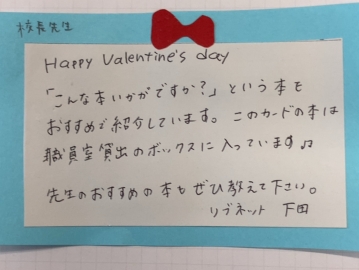 校長先生
Happy Valentine's day
「こんな本いかがですか?」という本を
おすすめで紹介しています。このカードの本は
職員室貸出のボックスに入っています♫
先生のおすすめの本もぜひ教えて下さい。
リブネット 下田